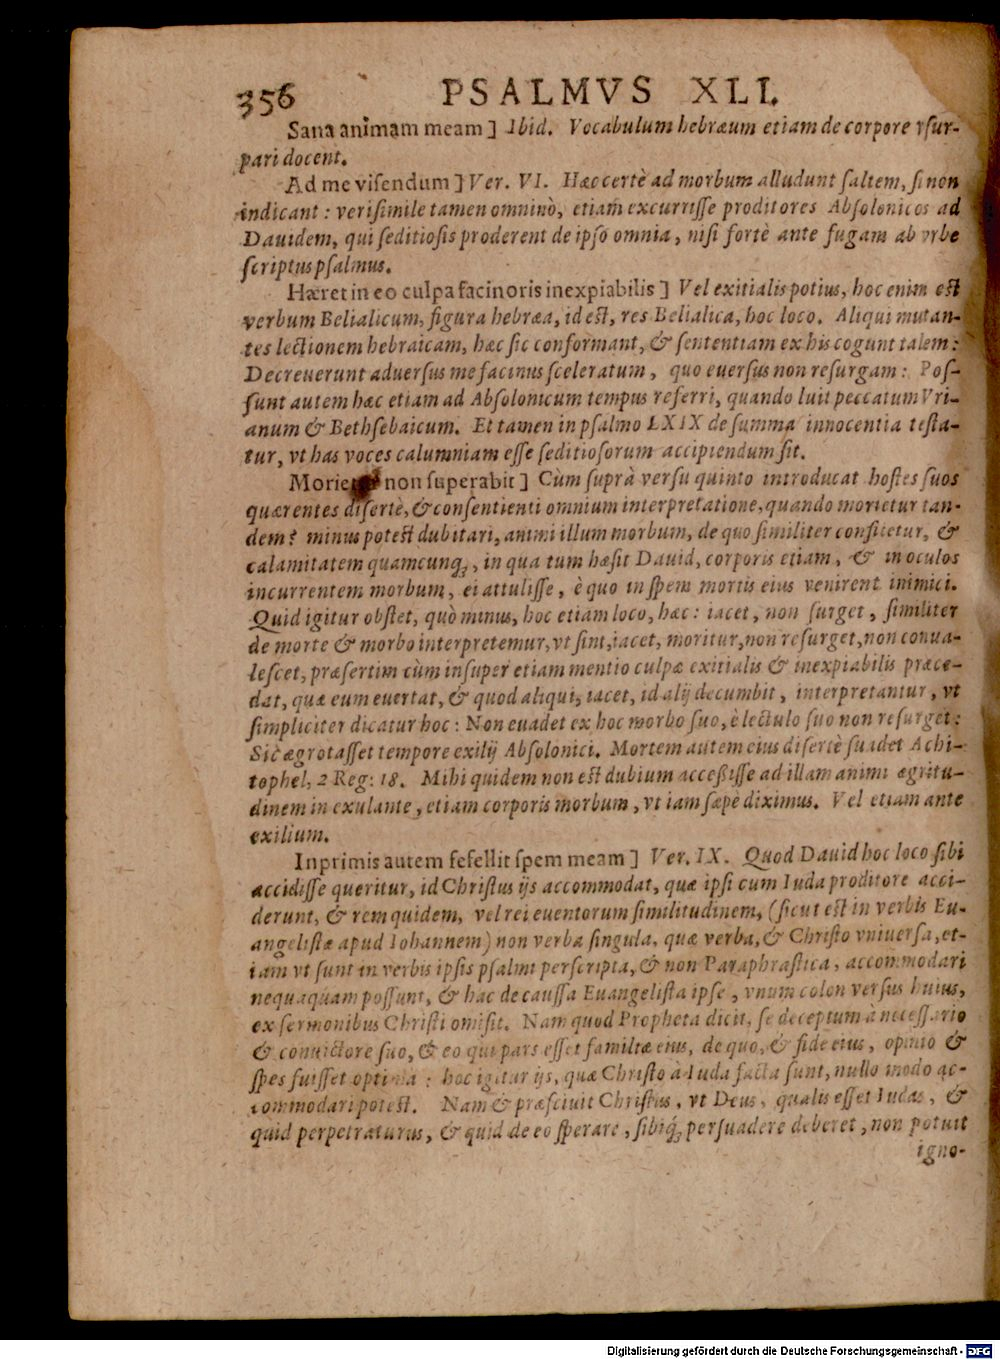 356 PSALMVS XLI.
Sana animam meam] Ibid. Vocabulum hebræum etiam de corpore vsur-
pari docent.
Ad me visendum] Ver. VI. Hæc certè ad morbum alludunt saltem, si non
indicant: verisimile tamen omninò, etiam excurrisse proditores Absolonicos ad
Dauidem, qui seditiosis proderent de ipso omnia, nisi fortè ante fugam ab vrbe
scriptus psalmus.
Hæret in eo culpa facinoris inexpiabilis] Vel exitialis potius, hoc enim est
verbum Belialicum, figura hebræa, id est, res Belialica, hoc loco. Aliqui mutan-
tes lectionem hebraicam, hæc sic conformant, & sententiam ex his cogunt talem:
Decreuerunt aduersus me facinus sceleratum, quo euersus non resurgam: Pos-
sunt autem hæc etiam ad Absolonicum tempus referri, quando luit peccatum Vri-
anum & Bethsebaicum. Et tamen in psalmo LXIX de summa innocentia testa-
tur, vt has voces calumniam esse seditiosorum accipiendum sit.
Morie non superabit] Cùm suprà versu quinto introducat hostes suos
quærentes disertè, & consentienti omnium interpretatione, quando morietur tan-
dem? minus potest dubitari, animi illum morbum, de quo similiter confitetur, &
calamitatem quamcunq;, in qua tum hæsit Dauid, corporis etiam, & in oculos
incurrentem morbum, ei attulisse, è quo in spem mortis eius venirent inimici.
Quid igitur obstet, quò minus, hoc etiam loco, hæc: iacet, non surget, similiter
de morte & morbo interpretemur, vt sint, iacet, moritur, non resurget, non conua-
lescet, præsertim cùm insuper etiam mentio culpæ exitialis & inexpiabilis præce-
dat, quæ eum euertat, & quod aliqui, iacet, id alij decumbit, interpretantur, vt
simpliciter dicatur hoc: Non euadet ex hoc morbo suo, è lectulo suo non resurget:
Sic ægrotasset tempore exilij Absolonici. Mortem autem eius disertè suadet Achi-
tophel, 2 Reg: 18. Mihi quidem non est dubium accessisse ad illam animi ægritu-
dinem in exulante, etiam corporis morbum, vt iam sæpè diximus. Vel etiam ante
exilium.
Inprimis autem fefellit spem meam] Ver. IX. Quod Dauid hoc loco sibi
accidisse queritur, id Christus ijs accommodat, quæ ipsi cum Iuda proditore acci-
derunt, & rem quidem, vel rei euentorum similitudinem, (sicut est in verbis Eu-
angelistæ apud Iohannem) non verba singula, quæ verba, & Christo vniuersa, et-
iam vt sunt in verbis ipsis psalmi perscripta, & non Paraphrastica, accommodari
nequaquam possunt, & hac de caussa Euangelista ipse, vnum colon versus huius,
ex sermonibus Christi omisit. Nam quod Propheta dicit, se deceptum à necessario
& conuictore suo, & eo qui pars esset familiæ eius, de quo, & fide eius, opinio &
spes fuisset optima: hoc igitur ijs, quæ Christo à Iuda facta sunt, nullo modo ac-
commodari potest. Nam & præsciuit Christus, vt Deus, qualis esset Iudas, &
quid perpetraturus, & quid de eo sperare, sibiq; persuadere deberet, non potuit
igno-
Digitalisierung gefördert durch die Deutsche Forschungsgemeinschaft - DFG